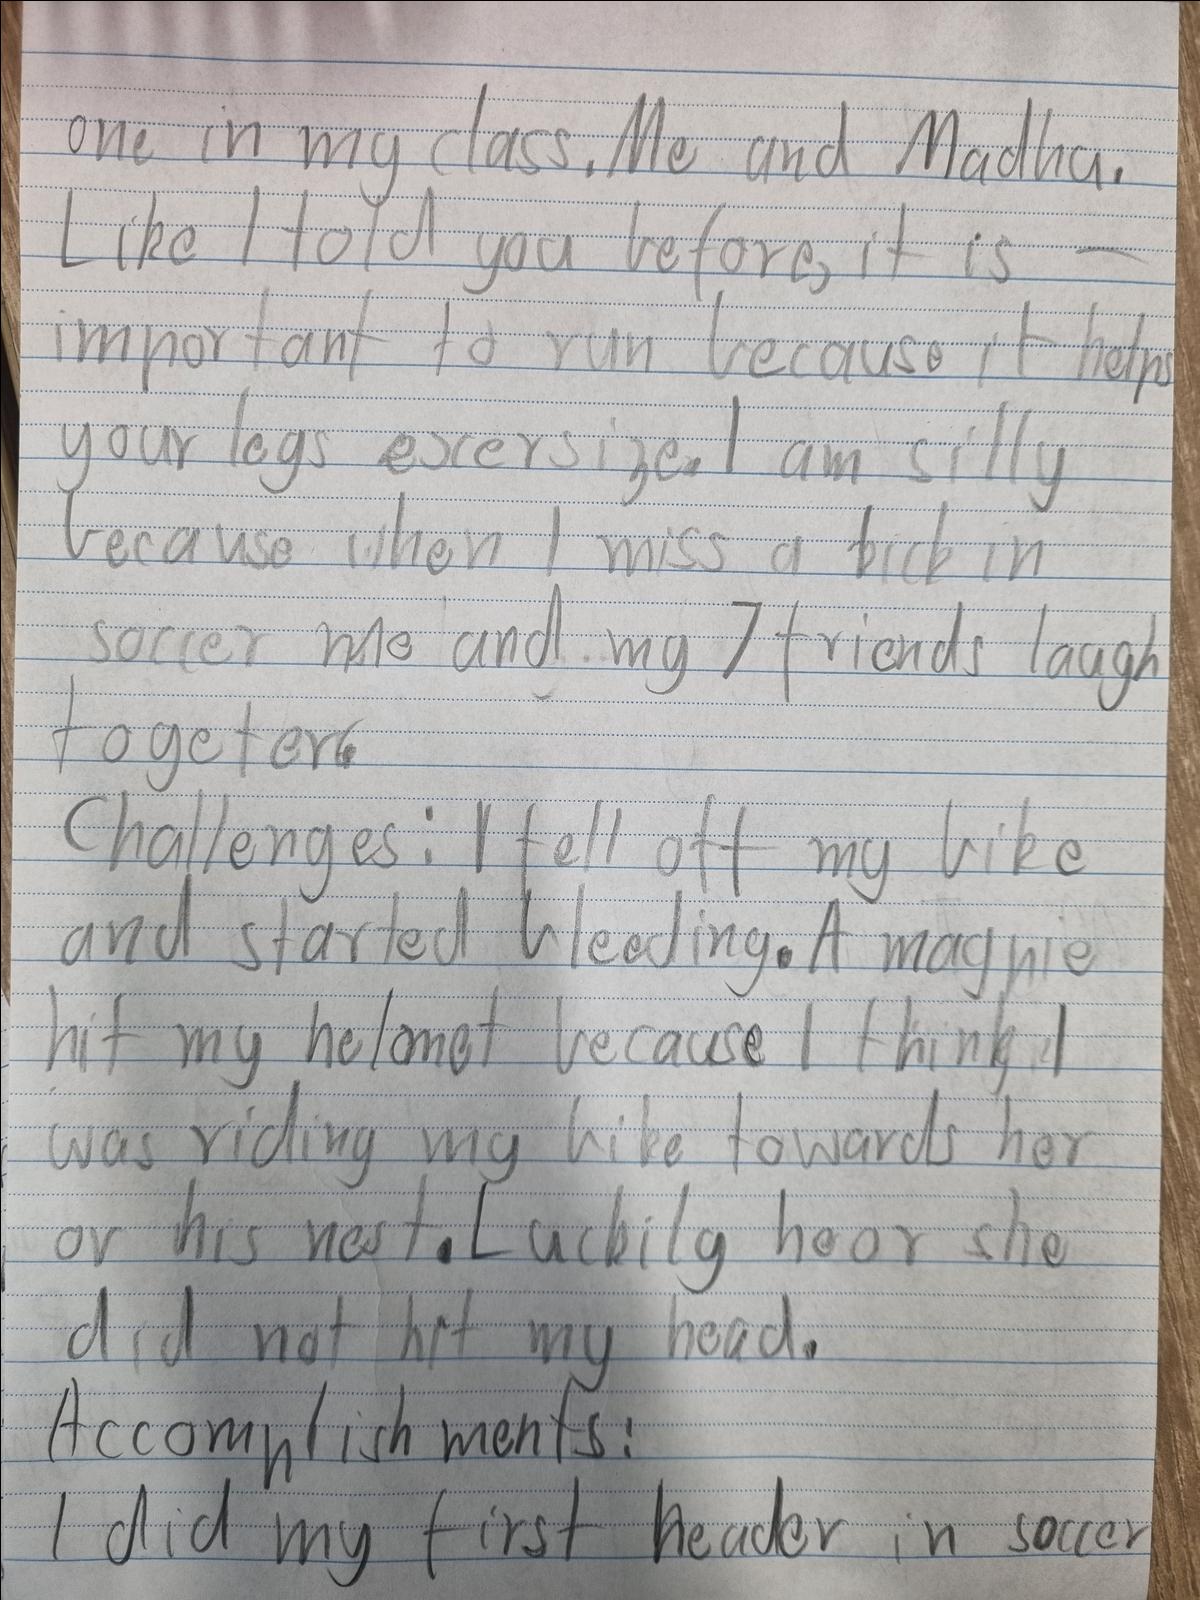 one in my class. Me and Madhu.
Like I told you before, it is —
important to run because it helps
your legs excersize. I am silly
because when I miss a kick in
soccer me and my 7 friends laugh
togeter.
Challenges: I fell off my bike
and started bleeding. A magpie
hit my helmet because I think I
was riding my bike towards her
or his nest. Luckily he or she
did not hit my head.
Accomplishments:
I did my first header in soccer